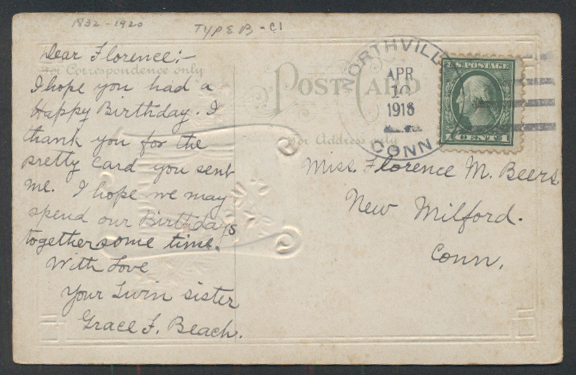 1832-1920
TYPE B-C1
Dear Florence:-
For Correspondence only
I hope you had a
Happy Birthday. I
thank you for the
pretty card you sent
me. I hope we may
spend our Birthdays
together some time.
With Love
Your Twin sister
Grace F. Beach.
POST CARD
For Address only
NORTHVILLE
APR
10
1918
CONN.
U.S. POSTAGE
1 CENT 1
Miss. Florence M. Beers
New Milford.
Conn.